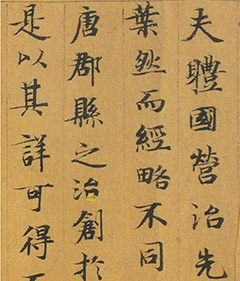 夫軆國營治先
葉然而經略不同
唐郡縣之治創扵
是以其詳可得